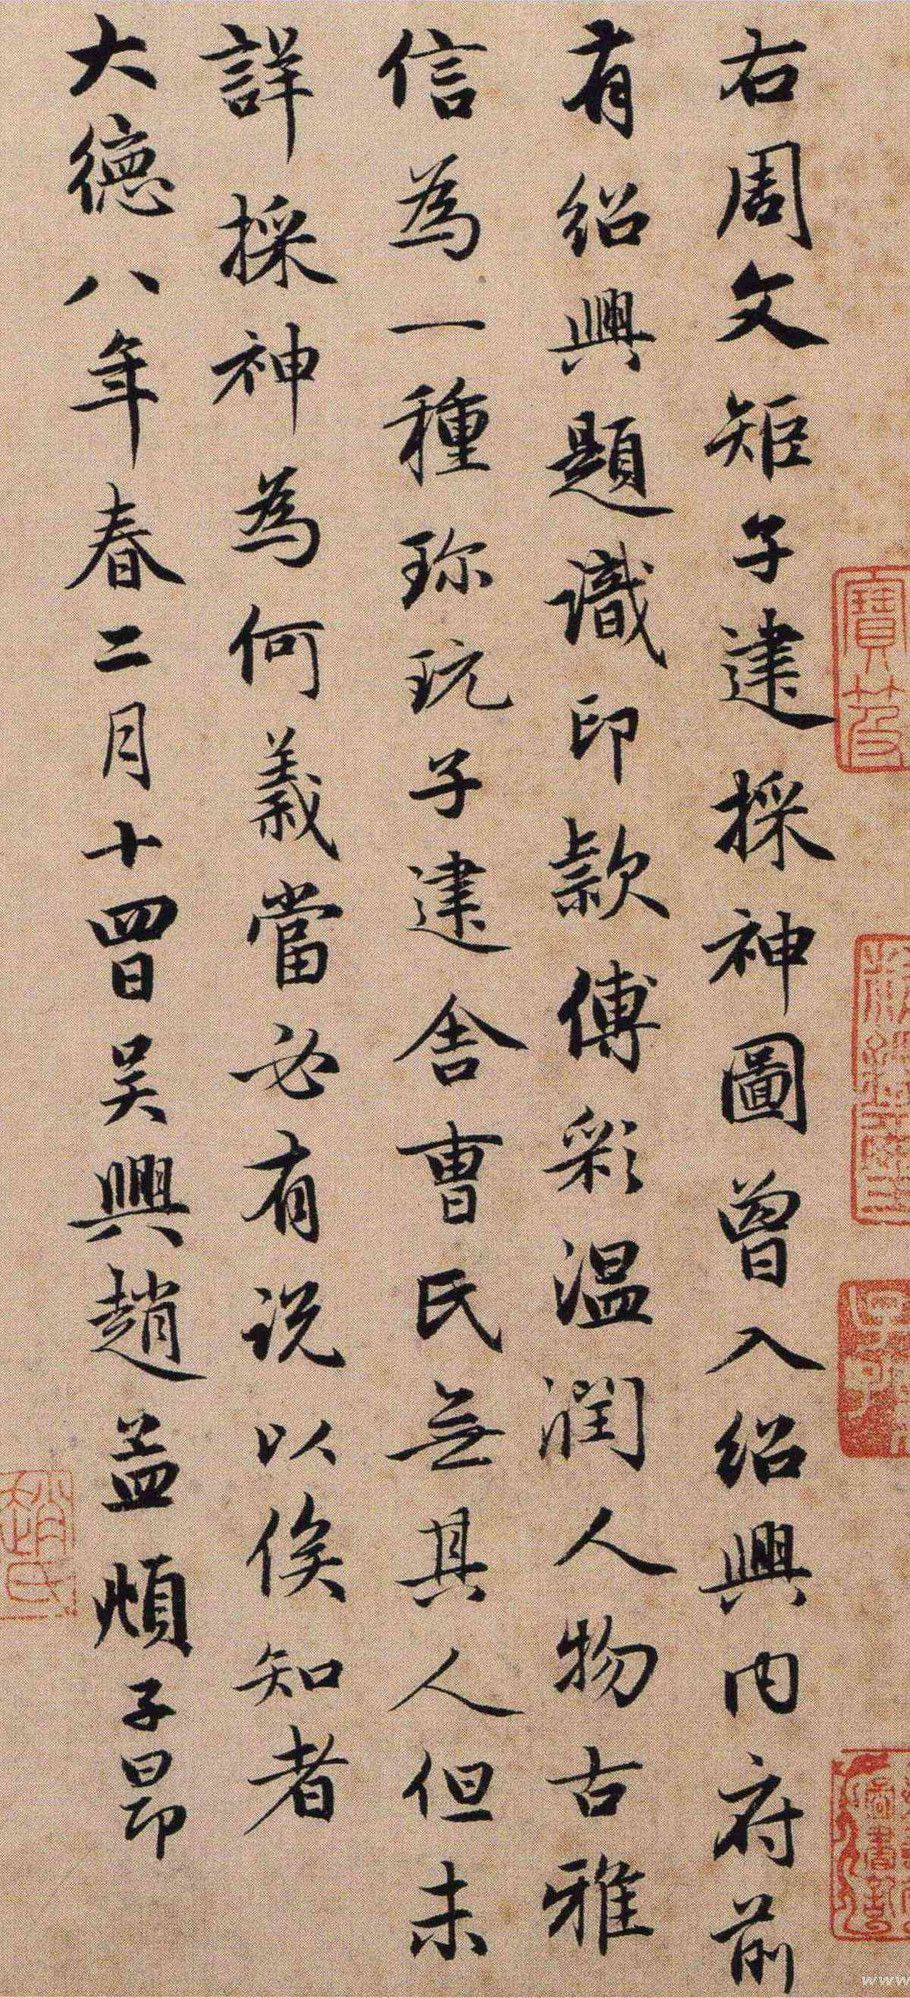 右周文矩子建採神圖曾入紹興内府前
有紹興題識印款傅彩温潤人物古雅
信為一種珎玩子建舍曹氏無其人但未
詳採神為何義當必有説以俟知者
大德八年春二月十四日吴興趙孟頫子昂
寶笈
趙氏
www.